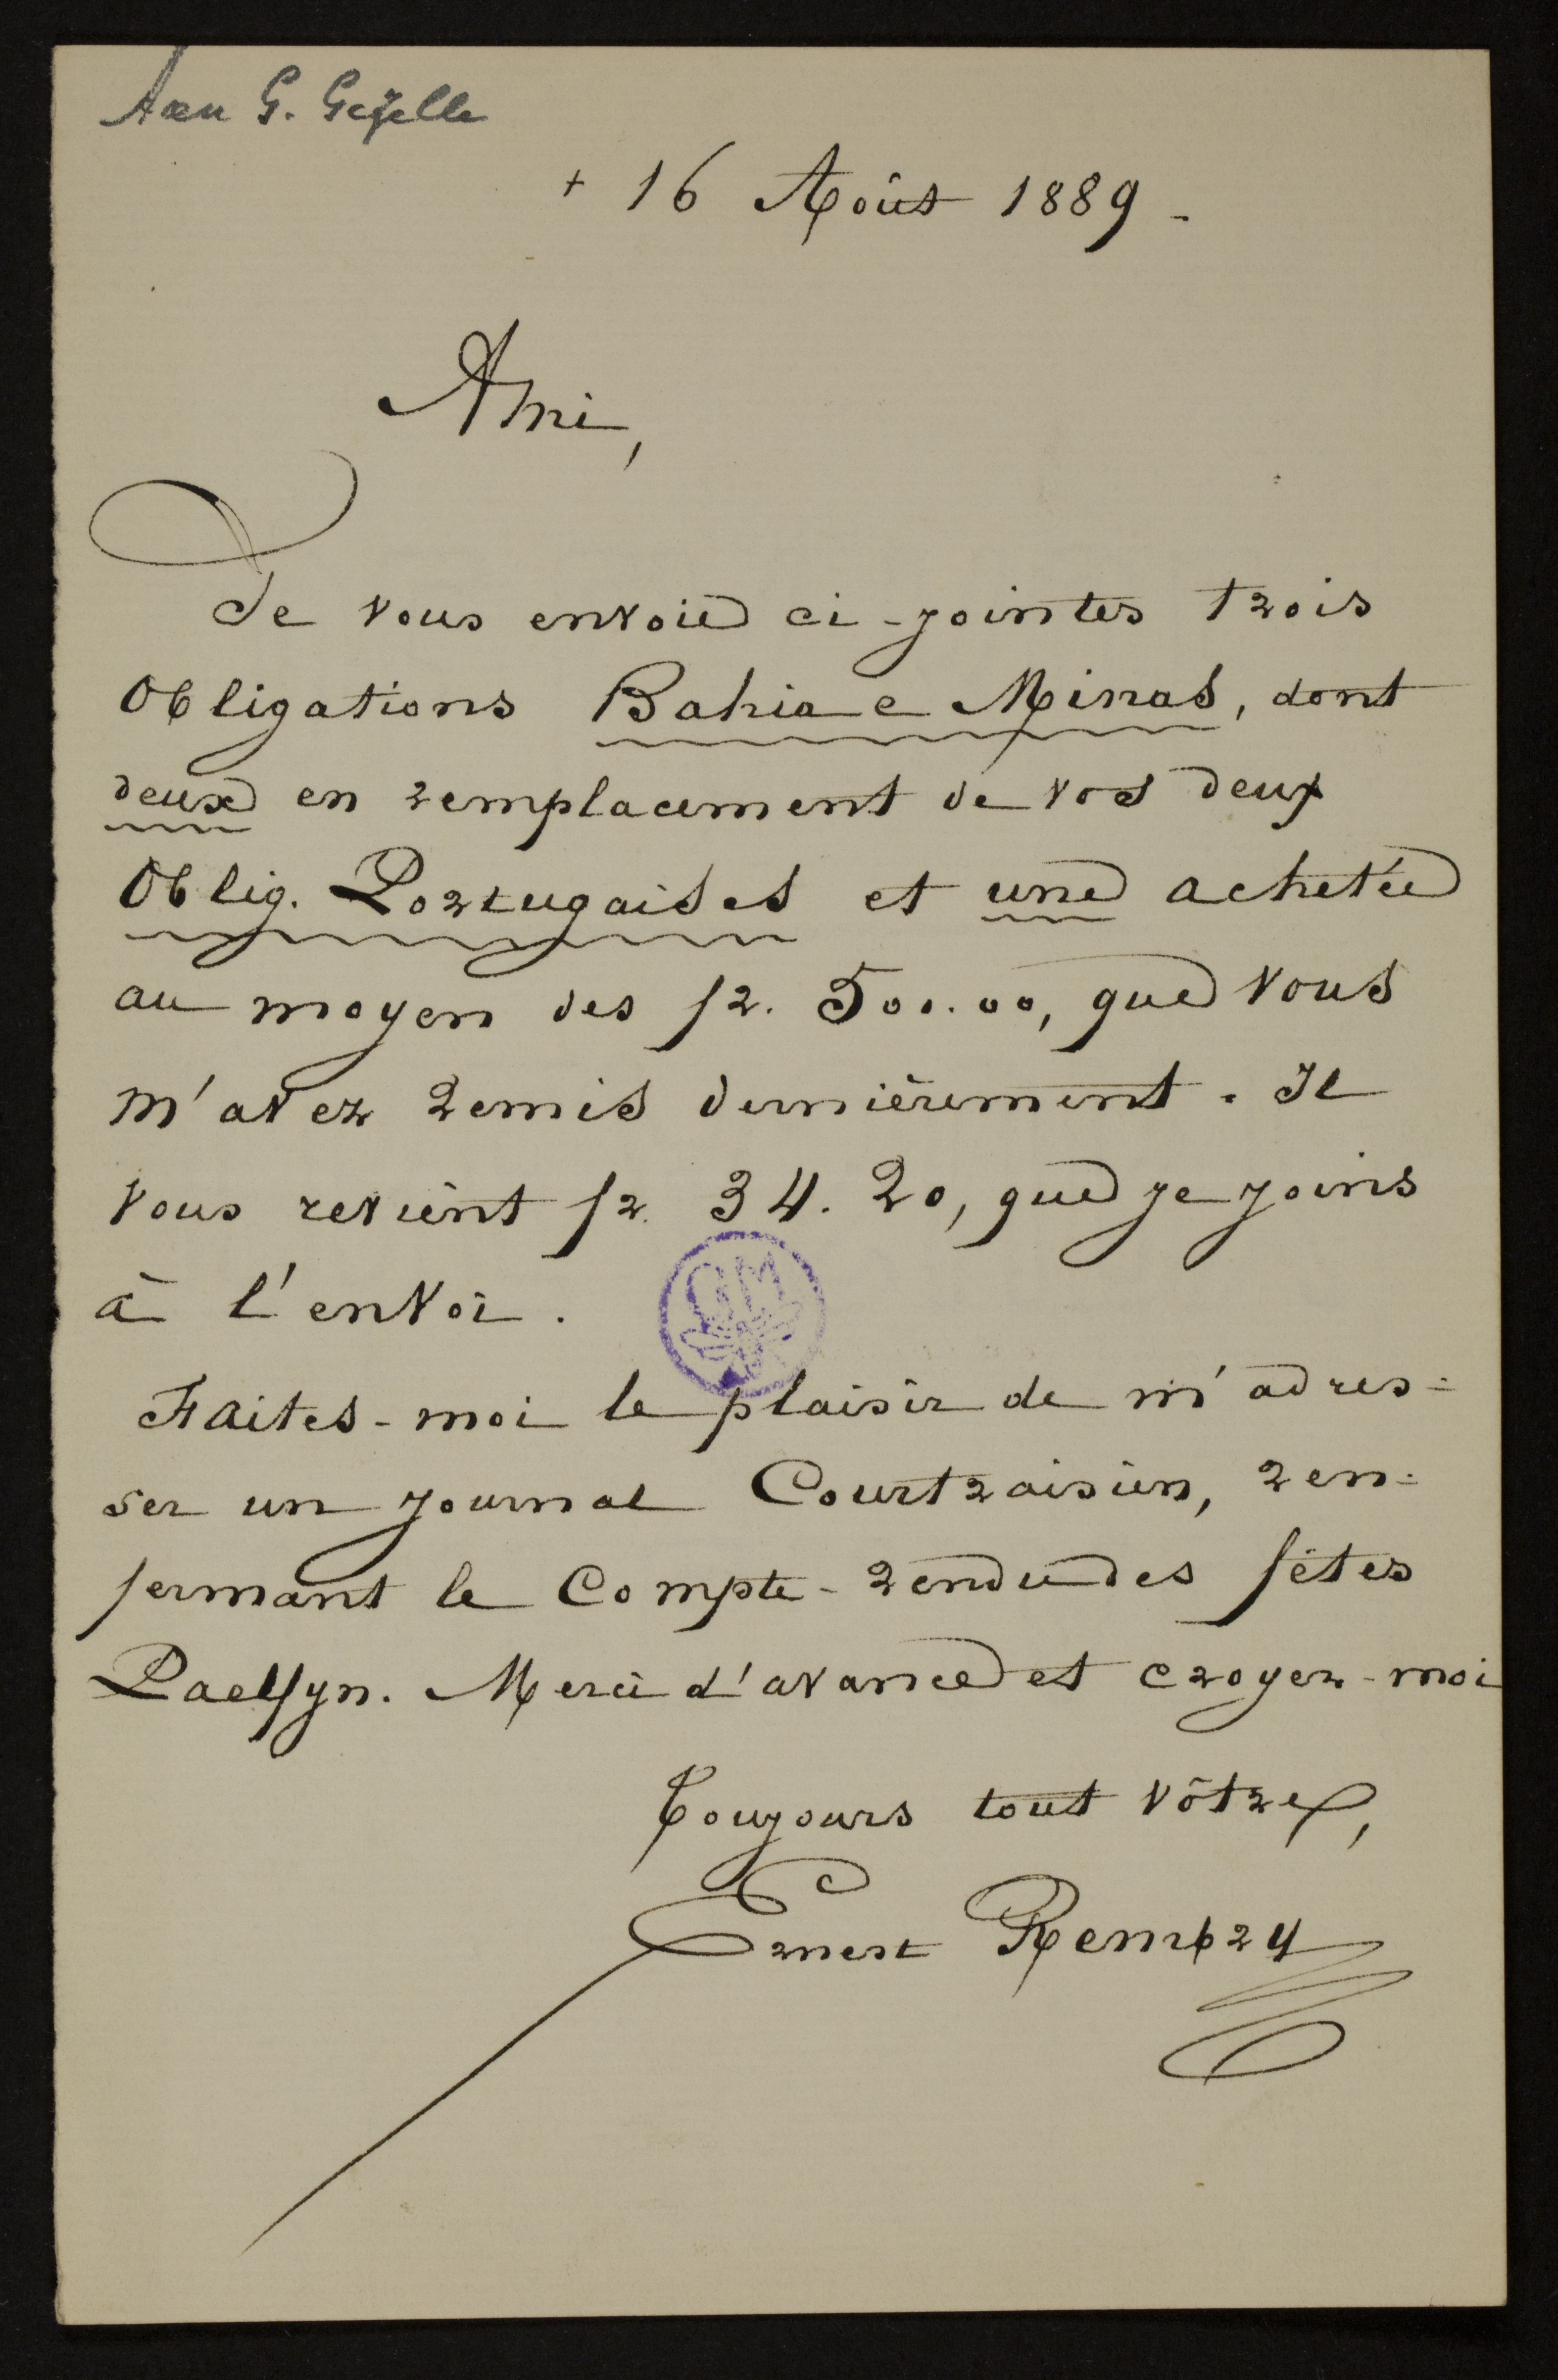 Aan G. Gezelle
+ 16 Août 1889 -
Ami,
Je vous envoie ci-jointes trois
Obligations Bahia e Minas, dont
deux en remplacement de vos deux
Oblig. Portugaises et une achetée
au moyen des fr. 500.00, que vous
m'avez remis dernièrement. Il
vous revient fr. 34.20, que je joins
à l'envoi.
GM
Faites-moi le plaisir de m'adres-
ser un journal Courtraisien, ren-
fermant le Compte-rendu des fêtes
Paelfyn. Merci d'avance et croyez-moi
Toujours tout vôtre,
Ernest Rembry